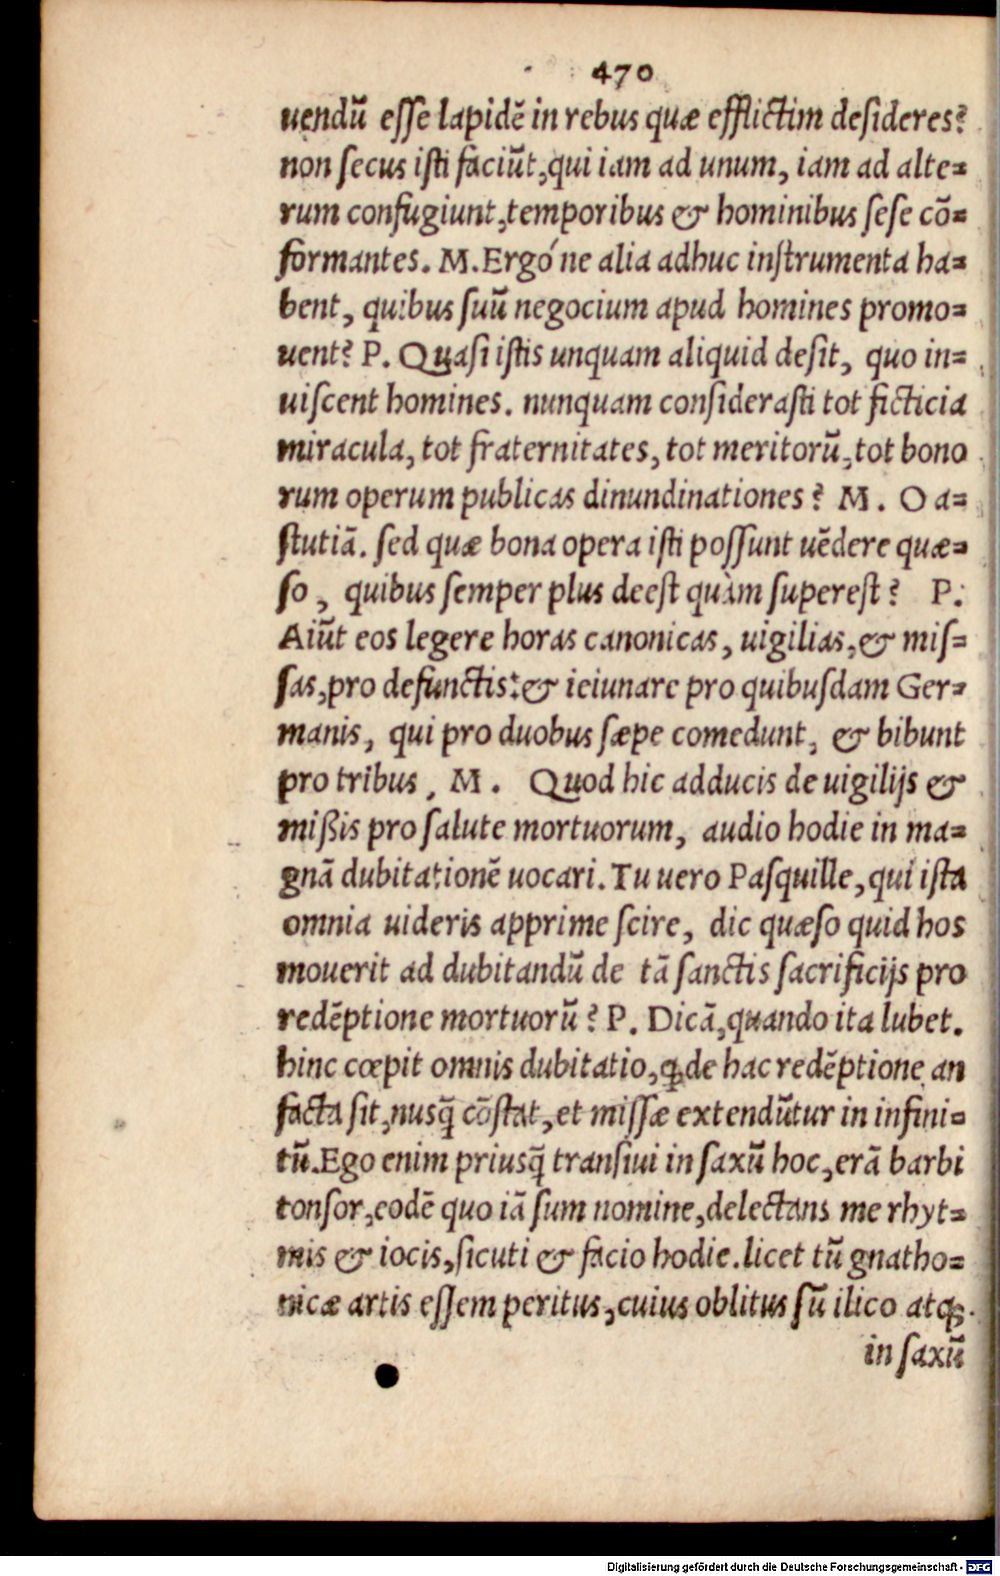 470
uendũ esse lapidẽ in rebus quæ efflictim desideres?
non secus isti faciũt, qui iam ad unum, iam ad alte=
rum confugiunt, temporibus & hominibus sese cõ=
formantes. M. Ergó ne alia adhuc instrumenta ha=
bent, quibus suũ negocium apud homines promo=
uent? P. Quasi istis unquam aliquid desit, quo in=
uiscent homines. nunquam considerasti tot ficticia
miracula, tot fraternitates, tot meritorũ, tot bono
rum operum publicas dinundinationes? M. O a=
stutiã. sed quæ bona opera isti possunt uẽdere quæ=
so, quibus semper plus deest quàm superest? P.
Aiũt eos legere horas canonicas, uigilias, & mis=
sas, pro defunctis: & ieiunare pro quibusdam Ger=
manis, qui pro duobus sæpe comedunt, & bibunt
pro tribus. M. Quod hic adducis de uigilijs &
mißis pro salute mortuorum, audio hodie in ma=
gnã dubitationẽ uocari. Tu uero Pasquille, qui ista
omnia uideris apprime scire, dic quæso quid hos
mouerit ad dubitandũ de tã sanctis sacrificijs pro
redẽptione mortuorũ? P. Dicã, quando ita lubet.
hinc cœpit omnis dubitatio, ꝙ de hac redẽptione an
facta sit, nusq̃ cõstat, et missæ extendũtur in infini=
tũ. Ego enim priusq̃ transiui in saxũ hoc, erã barbi
tonsor, eodẽ quo iã sum nomine, delectans me rhyt=
mis & iocis, sicuti & facio hodie. licet tũ gnatho=
nicæ artis essem peritus, cuius oblitus sũ ilico atq;
in saxũ
Digitalisierung gefördert durch die Deutsche Forschungsgemeinschaft - DFG